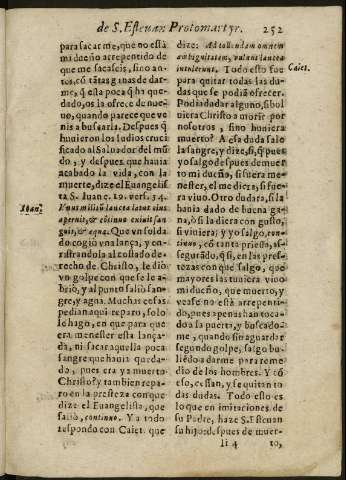 de S. Esteuan Protomartyr. 252
para sacarme, que no està
mi dueño arrepentido de
que me sacaseis, sino an-
tes, cõ tãtas ganas de dar-
me, q̃ esta poca q̃ ha que-
dado, os la ofrece de nue-
uo, quando parece que ve-
nis a buscarla. Despues q̃
huuieron los Iudios cruci-
ficado al Saluador del mũ-
do, y despues que hauia
acabado la vida, con la
muerte, dize el Euangelis-
ta S. Iuan c. 19. vers. 34.
Ioan.
Vnus militũ lancea latus eius
aperuit, & cõtinuo exiuit san-
guis, & aqua. Que vn solda-
do cogiò vna lança, y en-
ristrandola al costado de-
recho de Christo, le dio
vn golpe con que se le a-
briò, y al punto saliò san-
gre, y agua. Muchas cosas
pedian aqui reparo, solo
le hago, en que para que
era menester esta lança-
da, ni sacar aquella poca
sangre que hauia queda-
do, pues era ya muerto
Christo? y tambien repa-
ro en la presteza con que
dize el Euangelista, que
saliò, continuo. Y a todo
respondo con Caiet. que
dize: Ad tollendam omnem
ambiguitatem, valani lancea
Caiet.
interiorem. Todo esto fue
para quitar todas las du-
das que se podiã ofrecer.
Podia dudar alguno, si hu
uiera Christo a morir por
nosotros, sino huniera
muerto? A essa duda saliò
la sangre, y dize, si, q̃ pues
yo salgo despues de muer
to mi dueño, si fuera me-
nester, el me diera, si fue-
ra viuo. Otro dudara, si la
hauia dado de buena ga-
na, ò si la diera con gusto,
si viuiera; y yo salgo, con-
tinuo, cõ tanta priesa, as-
segurãdo, q̃ si, en las pres-
tezas con que salgo, que
mayores las tuuiera viuo
mi dueño, que muerto, y
vease no està arrepenti-
do, pues apenas han toca-
do a la puerta, y buscado-
me, quando sin aguardar
segundo golpe, salgo bu-
llẽdo a darme para reme
dio de los hombres. Y cõ
esso, cessan, y se quitan to
das dudas. Todo esso es
lo que en imitaciones de
su Padre, haze S. Esteuan
su hijo: despues de muer-
Ii 4 to,